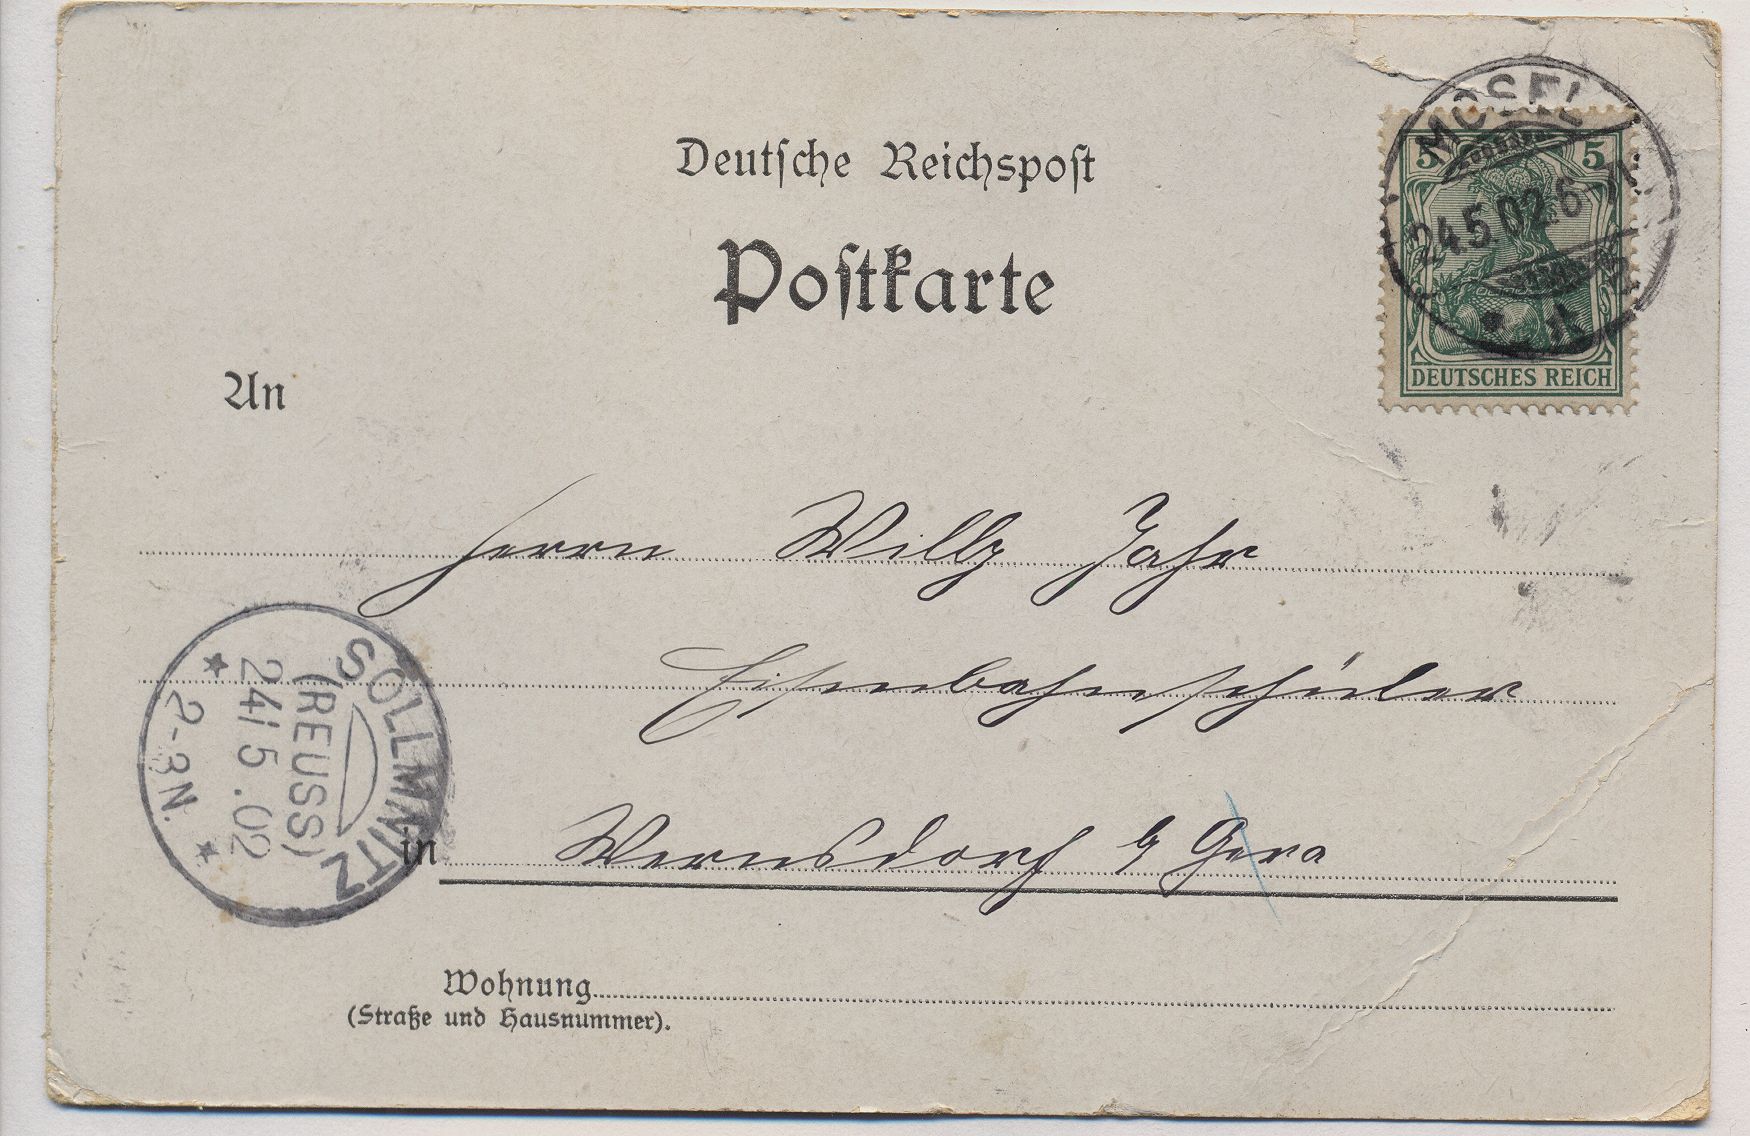 Deutsche Reichspost
Postkarte
MOSEL
5 5
24.5.02.6-7
DEUTSCHES REICH
An
Herrn Willy Jahr
Eisenbahnschüler
in Wernsdorf b/ Gera
SÖLLMNITZ
(REUSS)
24/5.02
2-3N.
Wohnung
(Straße und Hausnummer).